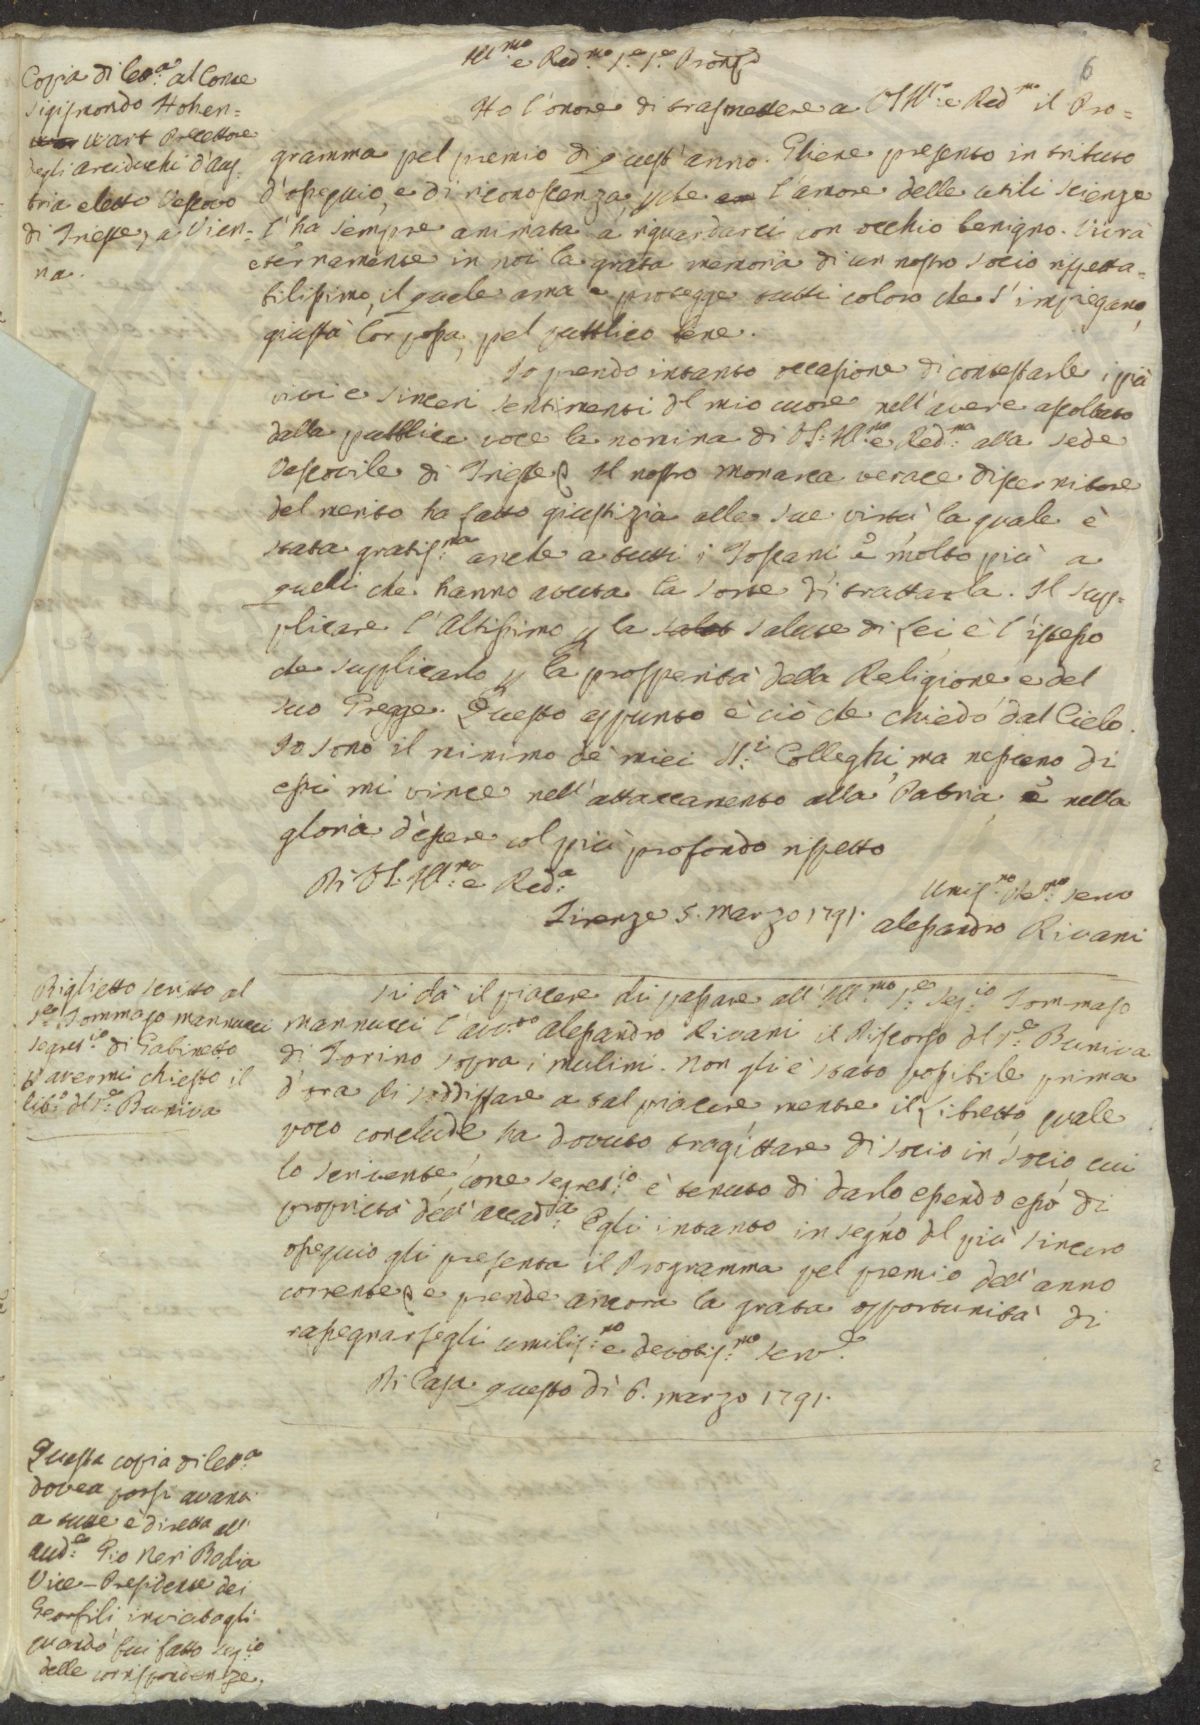 6
Copia di lett.ª al Conte
Sigismondo Hohen=
wart Precettore
degli Arciduchi d'Aus=
tria eletto Vescovo
di Trieste, a Vien=
na.
Ill.mo e Red.mo Sr. Sr. Pron.
Ho l'onore di trasmettere a VS Ill.ª e Red.ma il Pro=
gramma pel premio di quest'anno. Gliene presento in tributo
d'ossequio, e di riconoscenza, che l'amore delle utili scienze
l'ha sempre animata a riguardarci con occhio benigno. Vivrà
eternamente in noi la grata memoria di un nostro socio rispetta=
bilissimo, il quale ama e protegge tutti coloro che s'impiegano,
giusta lor possa, pel pubblico bene.
Io prendo intanto occasione di contestarle i più
vivi e sinceri sentimenti del mio cuore nell'avere ascoltato
dalla pubblica voce la nomina di VS. Ill.ma e Red.ma alla sede
Vescovile di Trieste. Il nostro Monarca verace discernitore
del merito ha fatto giustizia alle sue virtù la quale è
stata gratis.ma anche a tutti i Toscani, e molto più a
quelli che hanno avuta la sorte di trattarla. Il sup=
plicare l'Altissimo p la salute di Lei è l'istesso
che supplicarlo p la prosperità della Religione e del
suo Gregge. Questo appunto è ciò che chiedo dal Cielo.
Io sono il minimo de miei SS.i Colleghi, ma nessuno di
essi mi vince nell'attaccamento alla Patria, e nella
gloria d'essere col più profondo rispetto
Di VS. Ill.ma e Red.ª
Umis.mo dev.mo servo
Firenze 5. Marzo 1791. Alessandro Rivani
Biglietto scritto al
Sr. Tommaso Mannucci
Segret.io di Gabinetto
p avermi chiesto il
lib.o del Sr. Buniva
Si dà il piacere di passare all'Ill.mo Sr. Seg.io Tommaso
Mannucci l'avv.to Alessandro Rivani il Discorso del Sr. Buniva
di Torino sopra i mulini. Non gli è stato possibile prima
d'ora di soddisfare a tal piacere mentre il Libretto, quale
poco conclude, ha dovuto tragittare di socio in socio, cui
lo scrivente, come segret.io è tenuto di darlo essendo esso di
proprietà dell'Accad.ia Egli intanto in segno del più sincero
ossequio gli presenta il Programma pel premio dell'anno
corrente, e prende ancora la grata opportunità di
rassegnarsegli umilis.mo e devotis.mo serv.e
Di Casa questo dì 6. Marzo 1791.
Questa copia di lett.ª
dovea porsi avanti
a tutte è diretta all'
Aud.re Gio Neri Badia
Vice-Presidente dei
Georfili, inviatagli
quando fui fatto seg.io
delle corrispondenze.